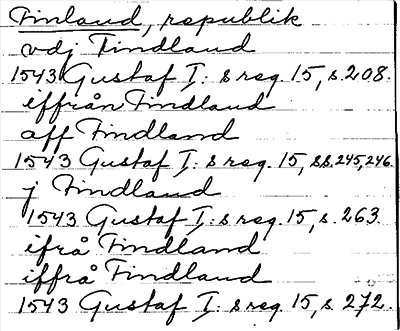 Finland, republik
vdj Findland
1543 Gustaf I: s reg. 15, s. 208.
iffrån Findland
aff Findland
1543 Gustaf I: s reg. 15, ss. 245, 246.
j Findland
1543 Gustaf I: s reg. 15, s. 263.
ifrå Findland
iffrå Findland
1543 Gustaf I: s reg. 15, s. 272.